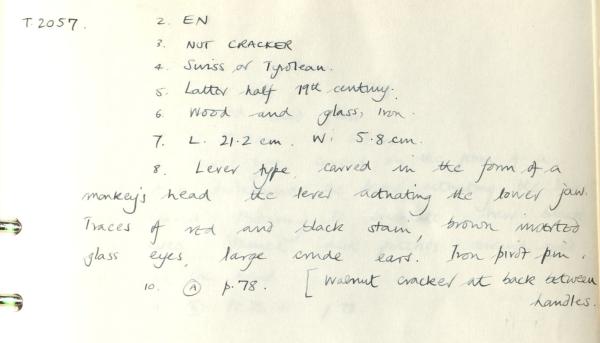 T.2057. 2. EN
3. NUT CRACKER
4. Swiss or Tyrolean.
5. Latter half 19th century.
6. Wood and glass, iron.
7. L. 21.2 cm. W. 5.8 cm.
8. Lever type, carved in the form of a
monkey's head the lever actuating the lower jaw.
Traces of red and black stain, brown inserted
glass eyes, large crude ears. Iron pivot pin.
10. Ⓐ p.78. [Walnut cracker at back between
handles.